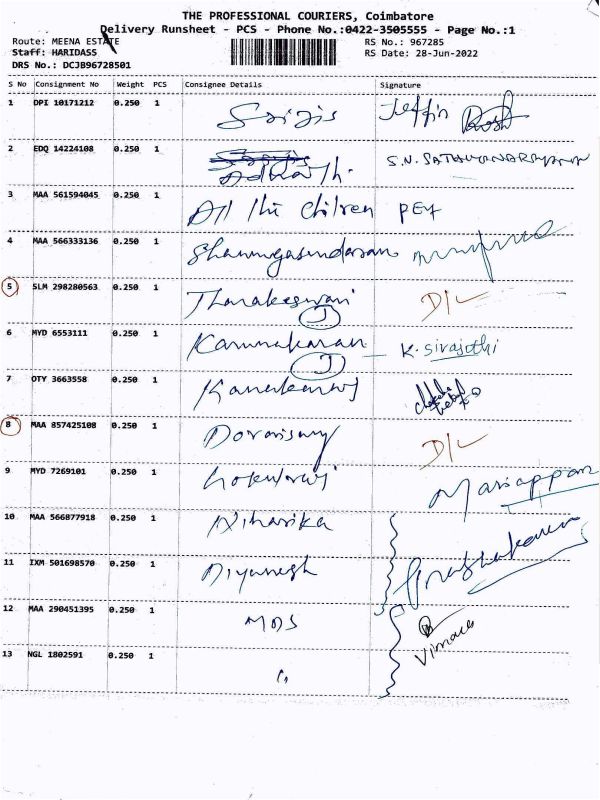 THE PROFESSIONAL COURIERS, Coimbatore
Delivery Runsheet - PCS - Phone No.:0422-3505555 - Page No.:1
Route: MEENA ESTATE RS No.: 967285
Staff: HARIDASS RS Date: 28-Jun-2022
DRS No.: DCJB96728501
S No Consignment No Weight PCS Consignee Details Signature
1 DPI 10171212 0.250 1 Jeffin
2 EDQ 14224108 0.250 1 S.N. SATHYANARAYANAN
3 MAA 561594045 0.250 1 All the Children
4 MAA 566333136 0.250 1 Shanmugasundaram
5 SLM 298280563 0.250 1 Tharakeeswari D/L
J
6 MYD 6553111 0.250 1 Karunakaran K. Sivajothi
J
7 OTY 3663558 0.250 1
8 MAA 857425108 0.250 1 Doraisamy D/L
9 MYD 7269101 0.250 1 Gokulraj Mariappan
10 MAA 566877918 0.250 1 Niharika
11 IXM 501698570 0.250 1 Diyanesh Prabhakaran
12 MAA 290451395 0.250 1 MDS
13 NGL 1802591 0.250 1 "
Vimala